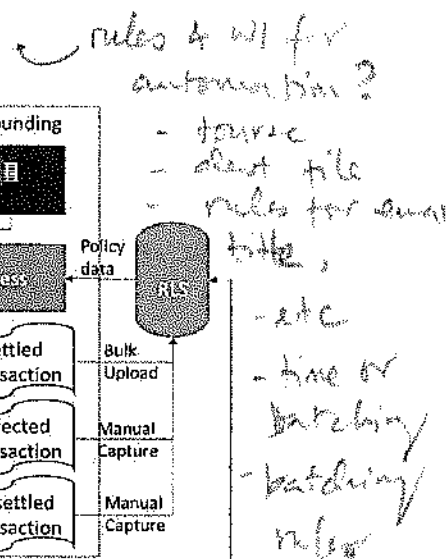 rules & WI for
automation?
- source
- client file
- rules for email
title,
- etc
- time or
batching
- batching
rules
unding
ess
Policy
data
RLS
ttled
saction
Bulk
Upload
ected
saction
Manual
Capture
settled
saction
Manual
Capture